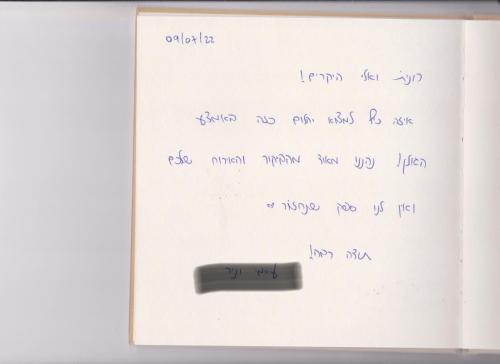 09/07/22
רונית ואלי היקרים!
איזה כיף למצוא יהלום כזה באמצע
האלון! נהננו מאוד מהביקור והאירוח שלכם
ואין לנו ספק שנחזור
תודה רבה!